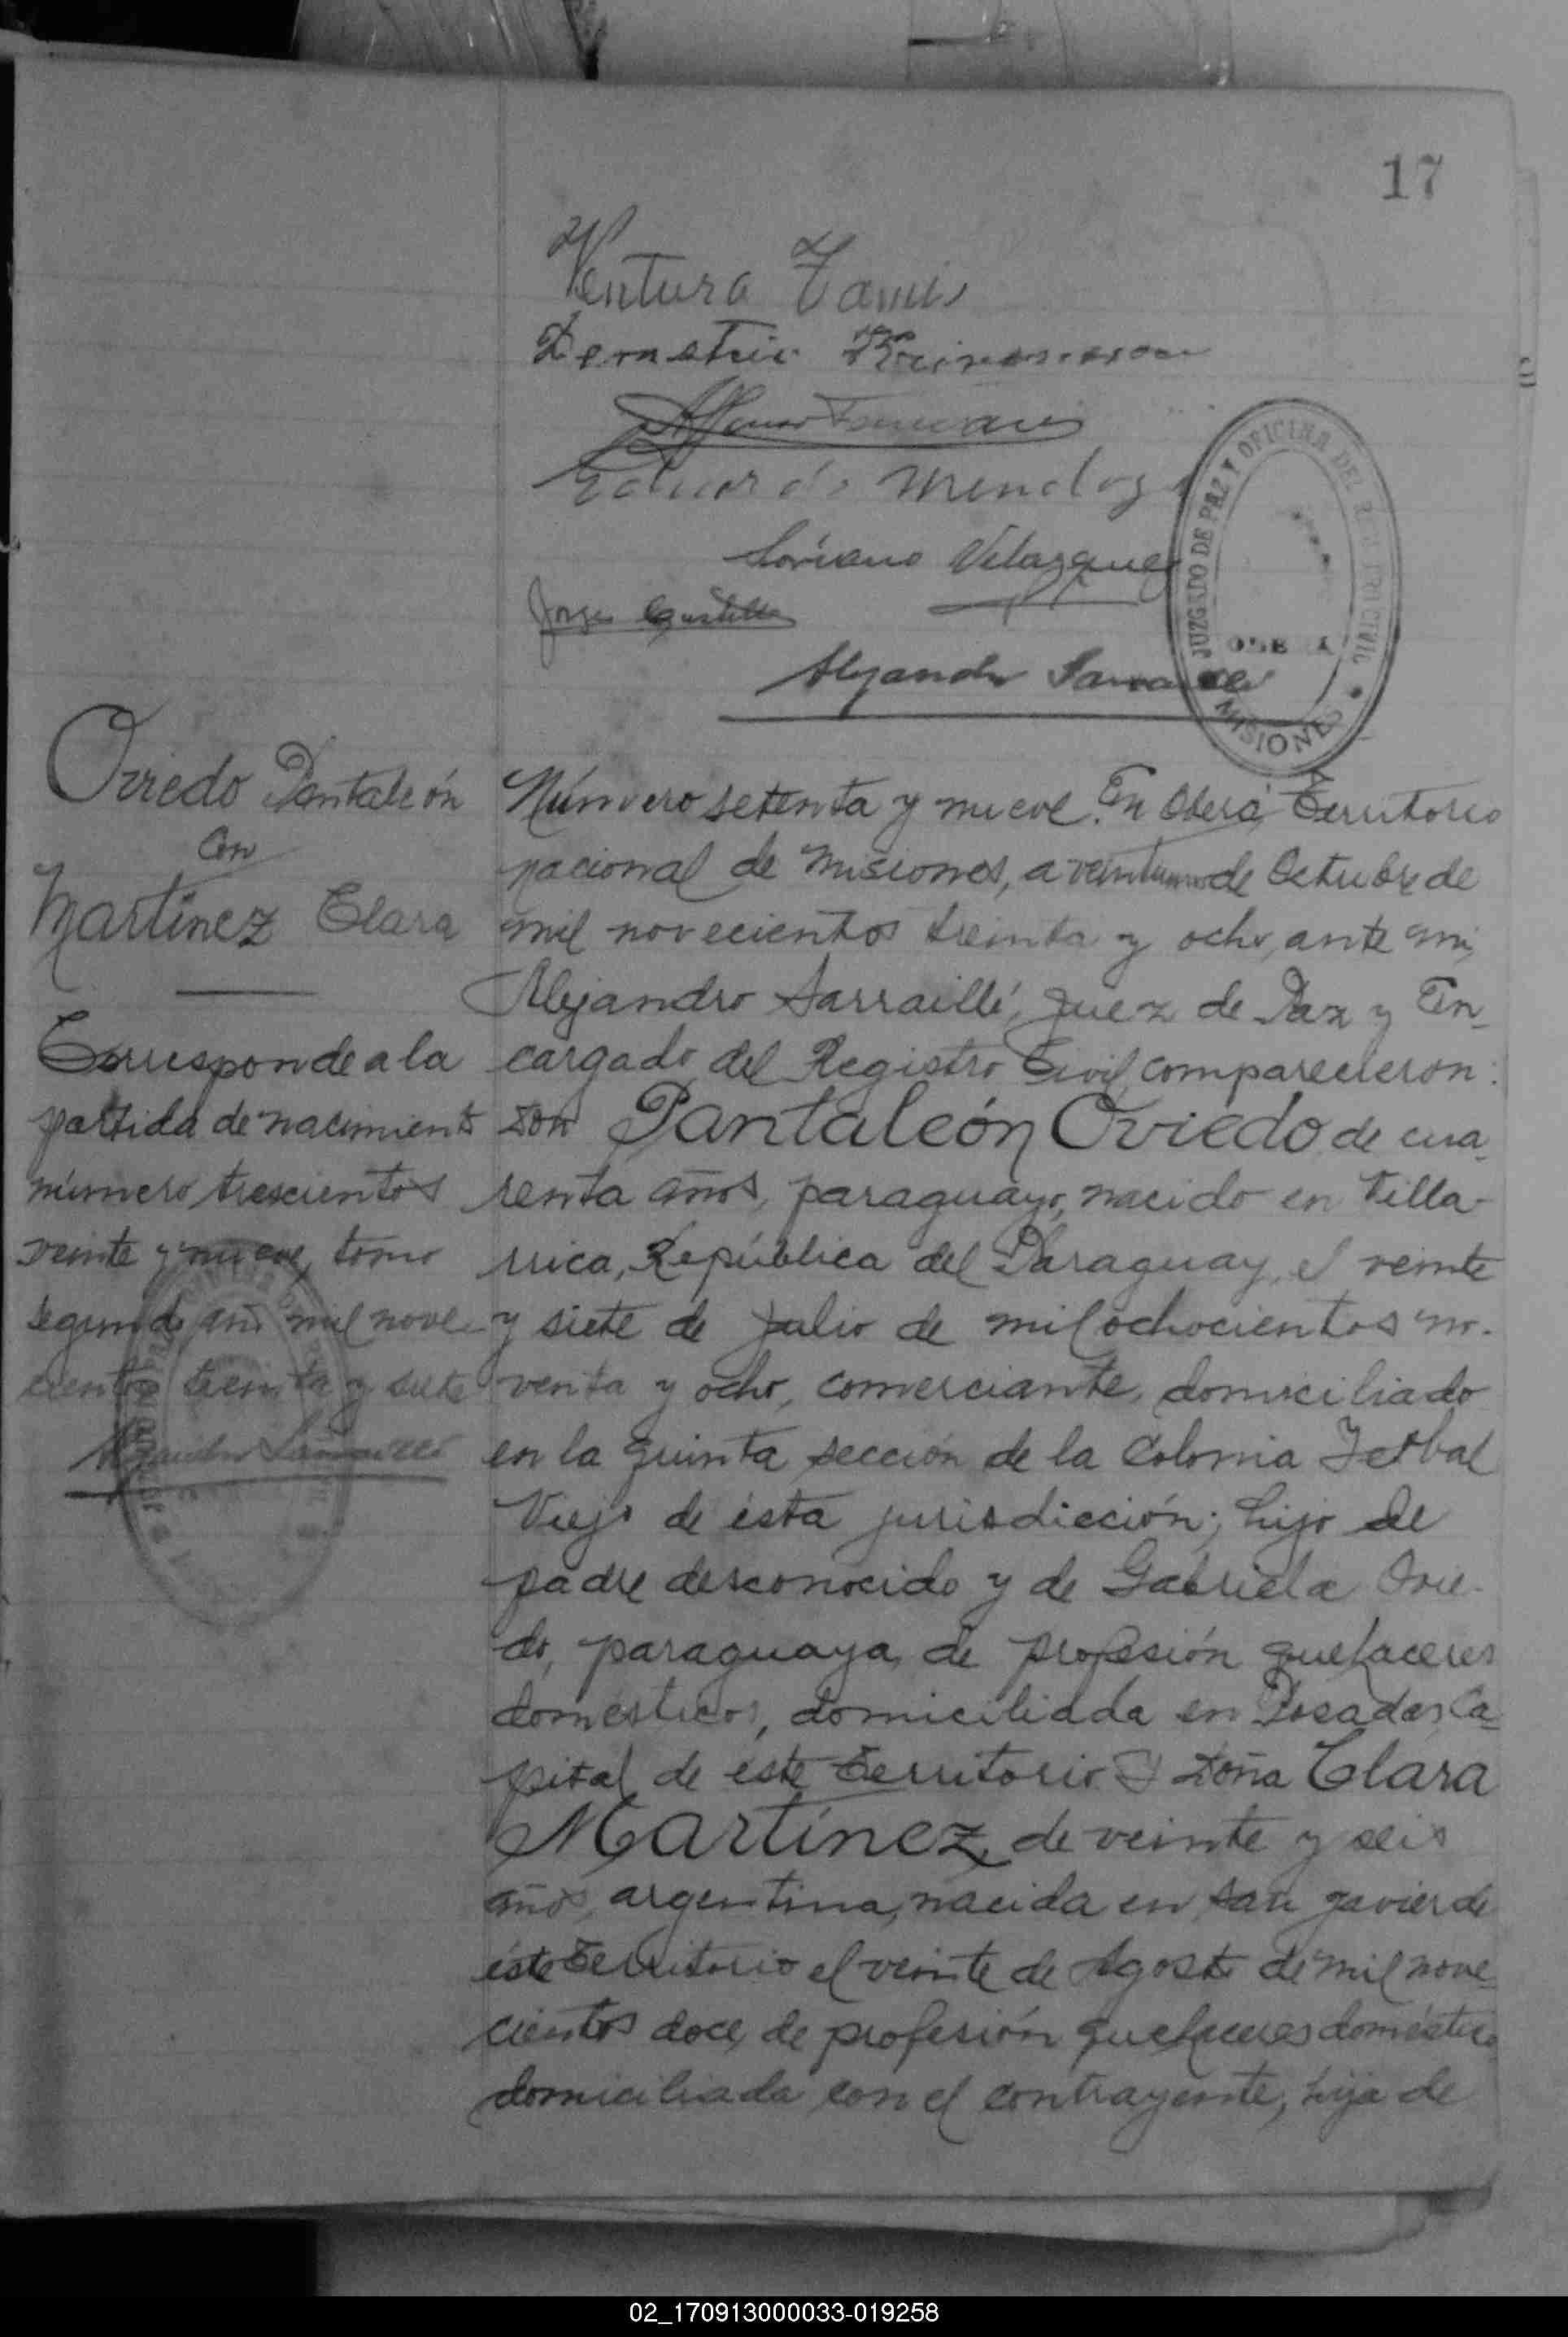 17
Ventura
Eduardo Mendoza
Soriano Velazquez
Jorge
Alejandro Sarraillé
JUZGADO DE PAZ Y OFICINA DEL REGISTRO CIVIL
OBERA
MISIONES
Oviedo Pantaleón
Con
Martínez Clara
Corresponde a la
partida de nacimiento
número trescientos
veinte y nueve, tomo
segundo año mil nove-
cientos treinta y siete
Alejandro Sarraillé
Número setenta y nueve. En Oberá, Territorio
nacional de Misiones, a veintiuno de Octubre de
mil novecientos treinta y ocho, ante mi,
Alejandro Sarraillé, Juez de Paz y En-
cargado del Registro Civil, comparecieron:
Don Pantaleón Oviedo, de cua-
renta años, paraguayo, nacido en Villa-
rrica, República del Paraguay, el veinte
y siete de Julio de mil ochocientos no-
venta y ocho, comerciante, domiciliado
en la quinta sección de la Colonia Yerbal
Viejo de ésta jurisdicción; hijo de
padre desconocido y de Gabriela Ovie-
do, paraguaya, de profesión quehaceres
domésticos, domiciliada en Posadas, Ca-
pital de éste Territorio. Y Doña Clara
Martínez, de veinte y seis
años, argentina, nacida en San Javier de
éste Territorio el veinte de Agosto de mil nove-
cientos doce, de profesión quehaceres domésticos
domiciliada con el contrayente, hija de
02_170913000033-019258